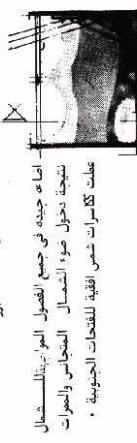 اضاءه جيده فى جميع الفصول المواجهة للشمال
نتيجة دخول ضوء الشمال المتجانس والممرات
عملت ككاسرات شمس افقية للفتحات الجنوبية .